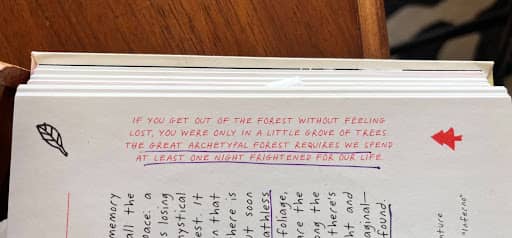 IF YOU GET OUT OF THE FOREST WITHOUT FEELING
LOST, YOU WERE ONLY IN A LITTLE GROVE OF TREES
THE GREAT ARCHETYPAL FOREST REQUIRES WE SPEND
AT LEAST ONE NIGHT FRIGHTENED FOR OUR LIFE
memory
all the
a
losing
It
that
is
soon
foliage,
the
the
there's
and
found.
"Inferno"